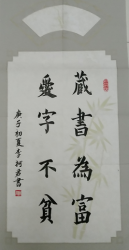 藏書為富
愛字不貧
庚子初夏李柯岩書